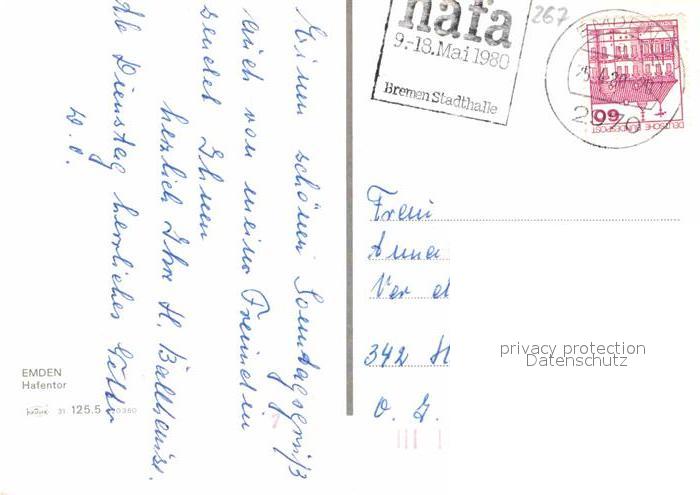 Einen schönen Sonntagsgruß
auch von meiner Freundin
sendet Ihnen
herzlich Ihre H.
Ab Dienstag herrliches Wetter
EMDEN
Hafentor
31 125.5
hafa
9.-18. Mai 1980
Bremen Stadthalle
267
2970
60
DEUTSCHE BUNDESPOST
Frau
Anna
Ver
342 H
privacy protection
Datenschutz